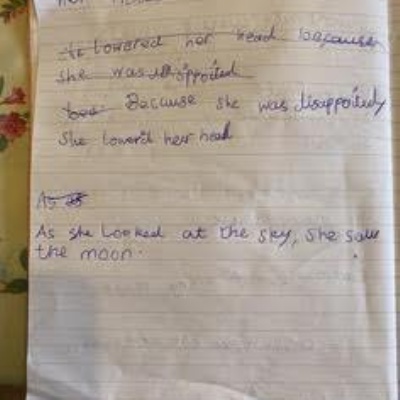 her
She lowered her head because
she was disappoited
Because she was disappoitedy
She lower'd herr head
As
As she looked at the sky, she saw
the moon.